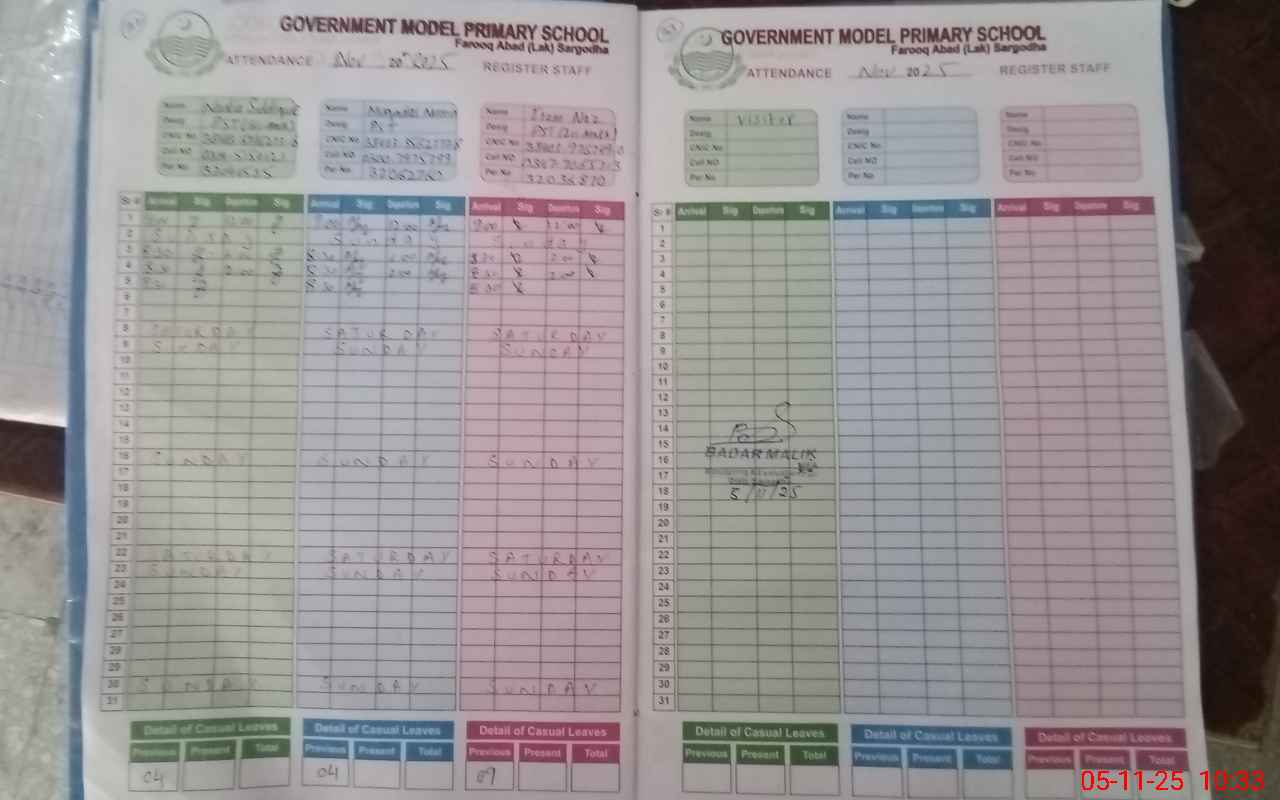 GOVERNMENT MODEL PRIMARY SCHOOL
Farooq Abad (Lak) Sargodha
ATTENDANCE Nov 2025 REGISTER STAFF
Name
Desig PST
CNIC No
Cell NO
Per No
Name
Desig PST
CNIC No
Cell NO
Per No 32062760
Name
Desig PST
CNIC No
Cell NO
Per No 32036870
Sr # Arrival Sig Deartrn Sig Arrival Sig Deartrn Sig Arrival Sig Deartrn Sig
1 9.00 12.00 9.00 12.00 9.00 12.00
2 SUNDAY Sunday Sunday
3 8.30 2.00 8.30 2.00 8.30 2.00
4 8.30 2.00 8.30 2.00 8.30 2.00
5 8.30 8.30 8.30
6
7
8 SATURDAY SATURDAY SATURDAY
9 SUNDAY SUNDAY SUNDAY
10
11
12
13
14
15
16 SUNDAY SUNDAY SUNDAY
17
18
19
20
21
22 SATURDAY SATURDAY SATURDAY
23 SUNDAY SUNDAY SUNDAY
24
25
26
27
28
29
30 SUNDAY SUNDAY SUNDAY
31
Detail of Casual Leaves Detail of Casual Leaves Detail of Casual Leaves
Previous Present Total Previous Present Total Previous Present Total
04 04 09
GOVERNMENT MODEL PRIMARY SCHOOL
Farooq Abad (Lak) Sargodha
ATTENDANCE Nov 2025 REGISTER STAFF
Name Visitor
Desig
CNIC No
Cell NO
Per No
Name
Desig
CNIC No
Cell NO
Per No
Name
Desig
CNIC No
Cell NO
Per No
Sr # Arrival Sig Deartrn Sig Arrival Sig Deartrn Sig Arrival Sig Deartrn Sig
1
2
3
4
5
6
7
8
9
10
11
12
13
14
15
16 BADAR MALIK
17
18 5/11/25
19
20
21
22
23
24
25
26
27
28
29
30
31
Detail of Casual Leaves Detail of Casual Leaves Detail of Casual Leaves
Previous Present Total Previous Present Total Previous Present Total
05-11-25 10:33